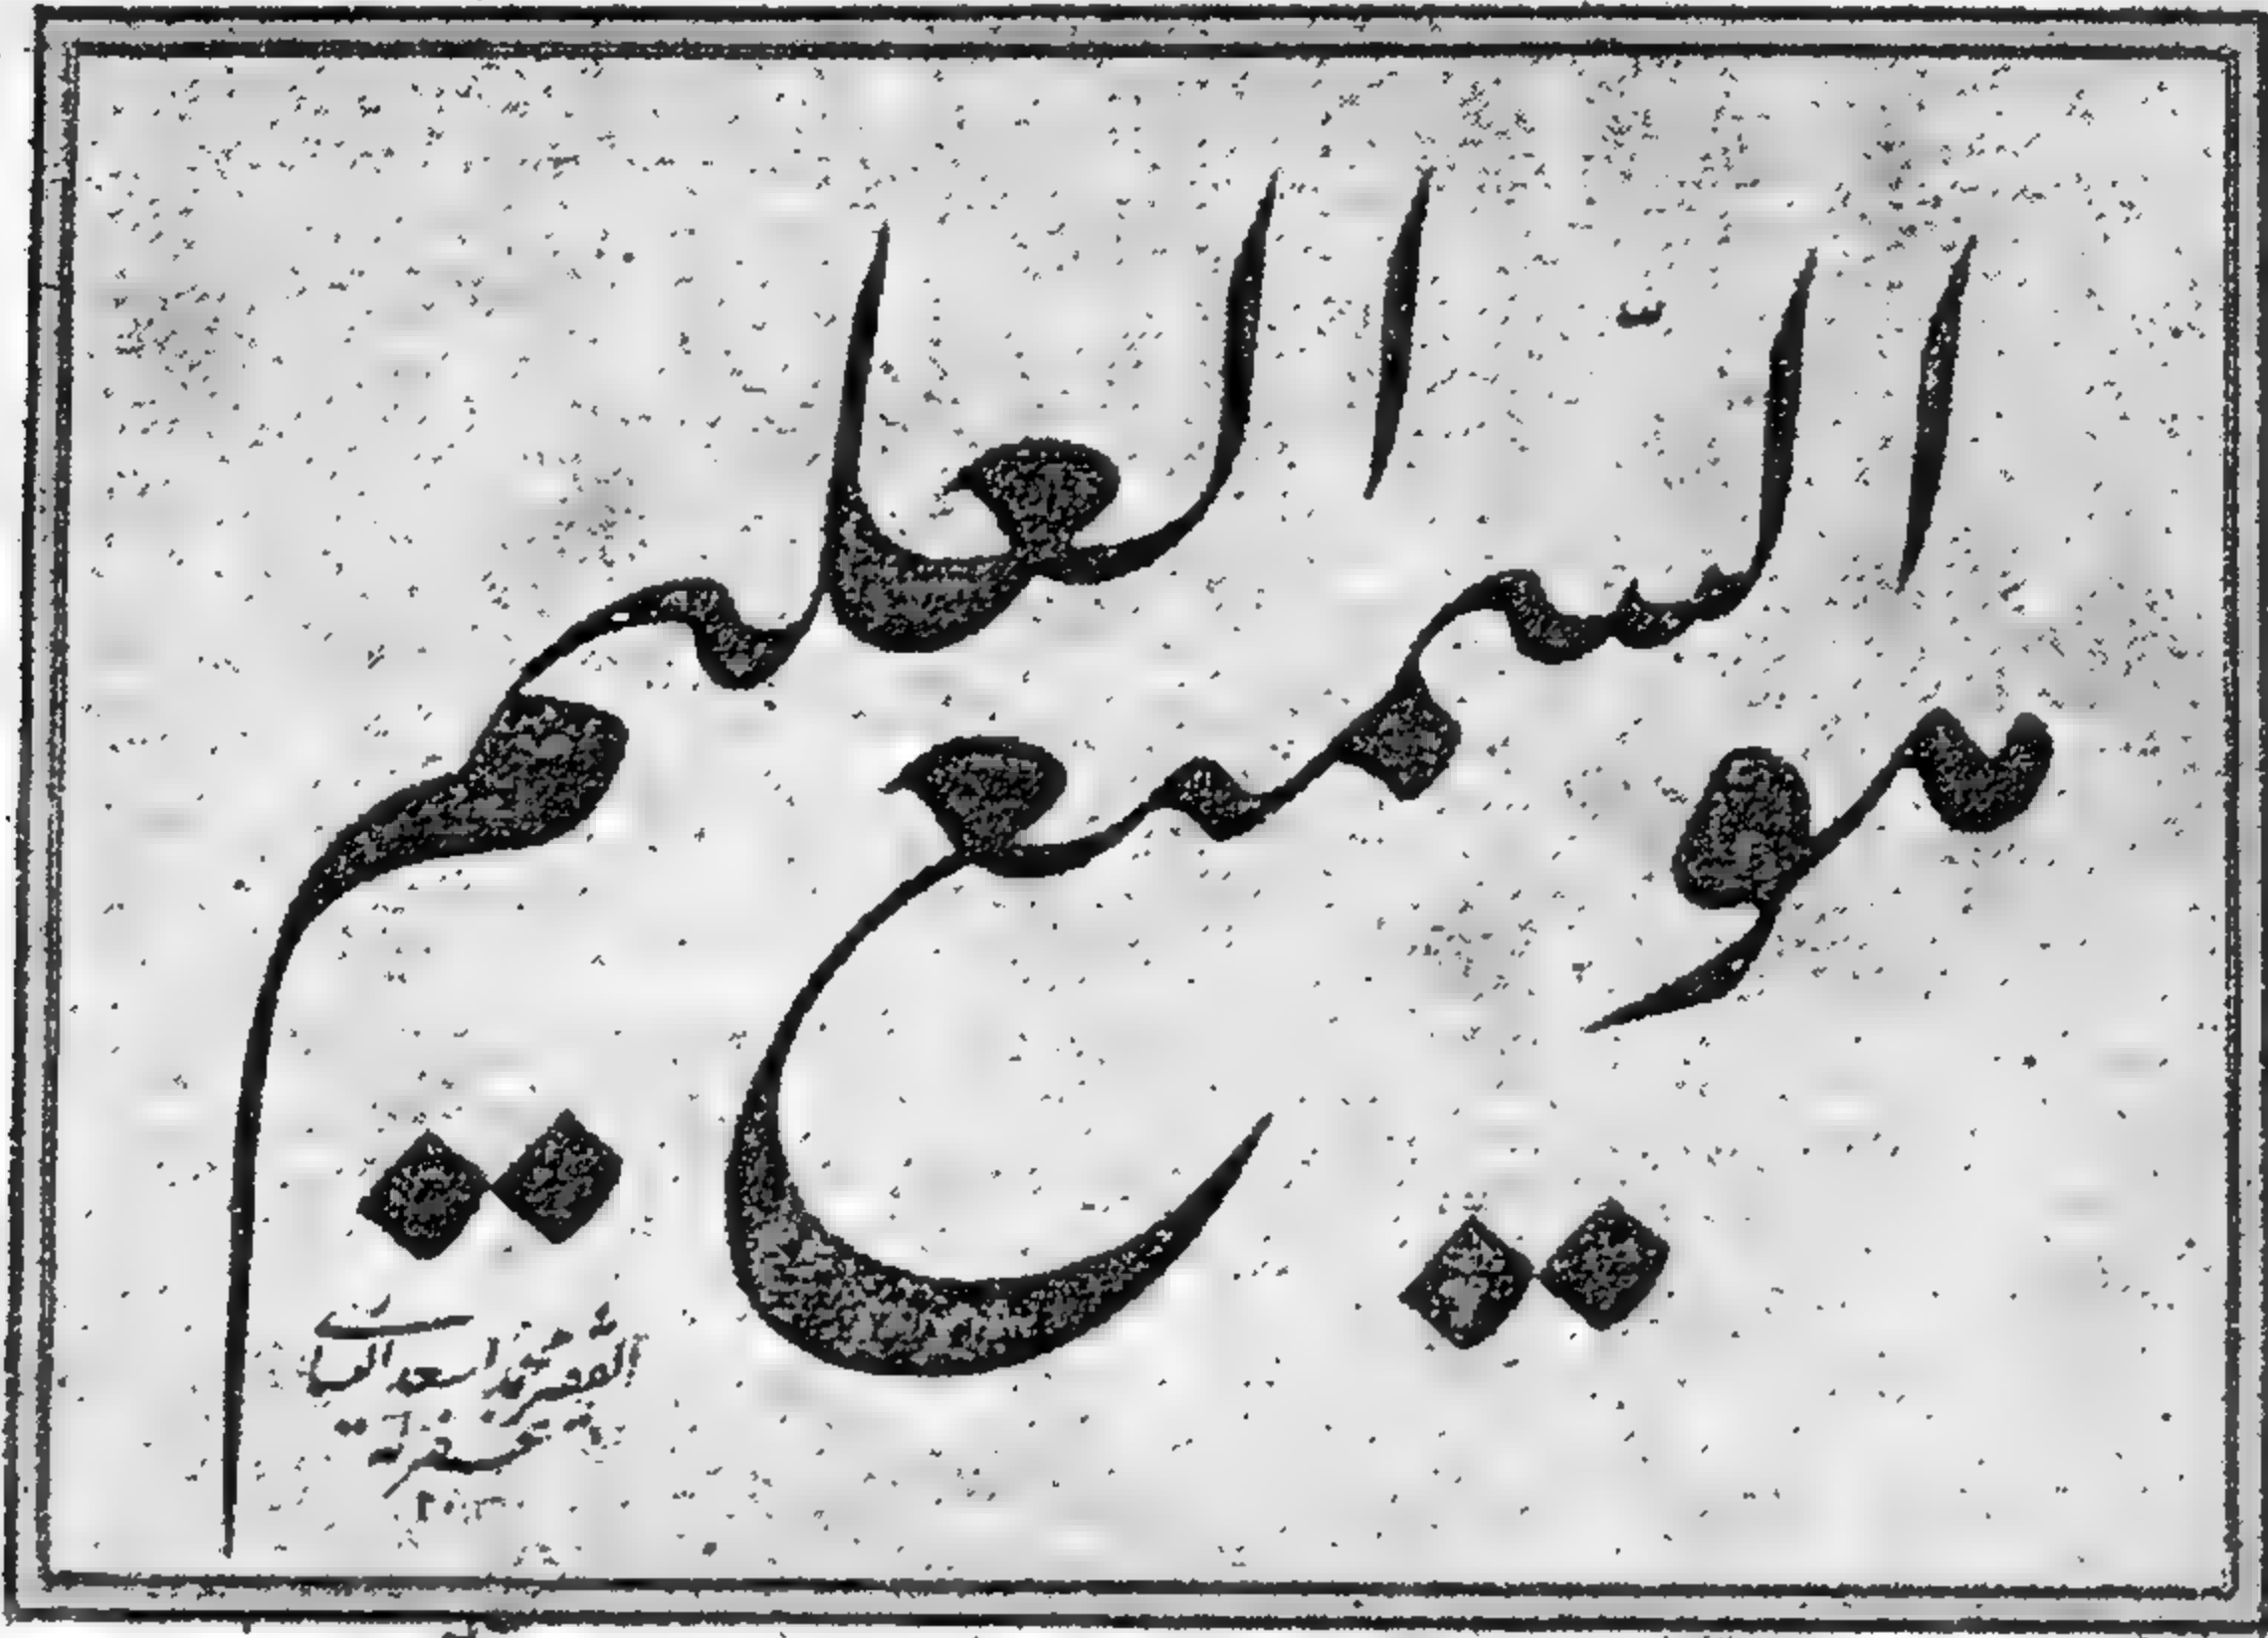 هو السميع العليم
الفقير محمد اسعد اليساري
غفر له